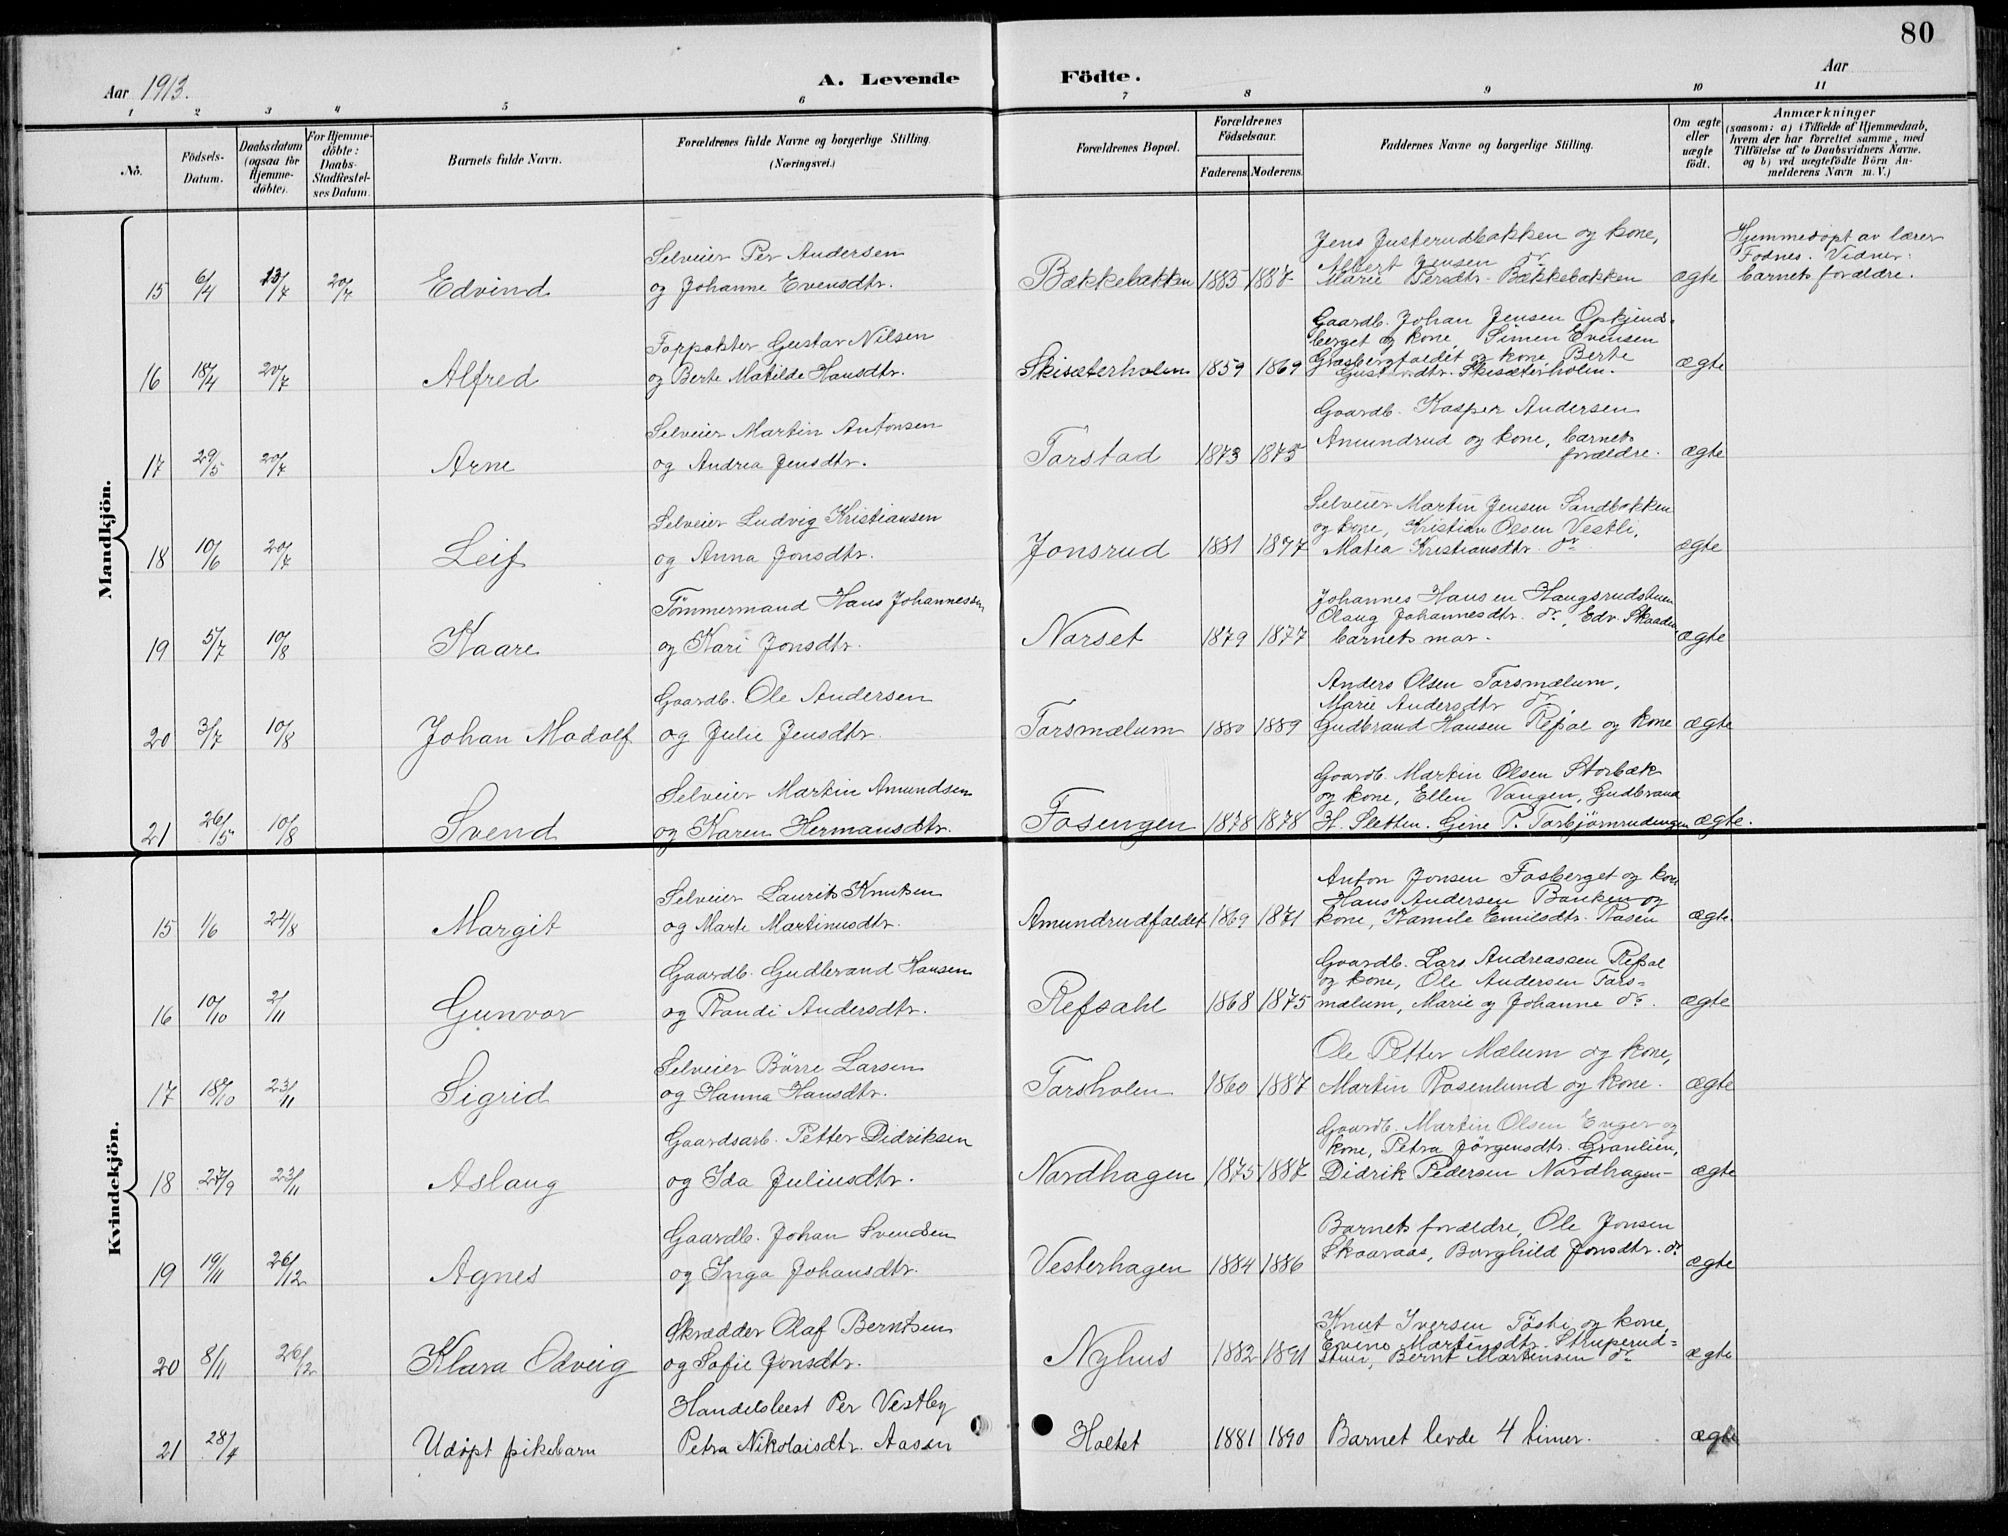 80
Aar 1913.
A. Levende Födte.
Aar
1 2 3 4 5 6 7 8 9 10 11
No.
Födsels-Datum.
Daabsdatum (ogsaa for Hjemme-döbte).
For Hjemme-döbte: Daabs-Stadfæstel-ses Datum.
Barnets fulde Navn.
Forældrenes fulde Navne og borgerlige Stilling. (Næringsvei.)
Forældrenes Bopæl.
Forældrenes Födselsaar.
Faderens. Moderens.
Faddernes Navne og borgerlige Stilling.
Om ægte eller uægte födt.
Anmærkninger
(saasom: a) i Tilfælde af Hjemmedaab, hvem der har forrettet samme, med Tilföielse af to Daabsvidners Navne. og b) ved uægtefödte Börn An-melderens Navn m. V.)
Mandkjön.
15 6/4 13/7 20/7 Edvind
Selveier Per Andersen
og Johanne Evensdtr.
Bækkebakken 1885 1887
Jens Justerudbakken og kone,
Albert Jensen do
Marie Persdtr. Bækkebakken
ægte
Hjemmedøpt av lærer
Fodnes. Vidner:
barnets forældre.
16 18/4 20/7 Alfred
Forpakter Gustav Nilsen
og Berte Matilde Hansdtr.
Skisæterholen 1859 1869
Gaardb. Johan Jensen Opkjends-
berget og kone, Simen Evensen
Græsbergfaldet og kone, Berte
Gust dtr. Skisæterholen.
ægte
17 29/5 20/7 Arne
Selveier Martin Antonsen
og Andrea Jensdtr.
Torstad 1873 1875
Gaardb. Kasper Andersen
Amundrud og kone, barnets
forældre.
ægte
18 10/6 20/7 Leif
Selveier Ludvig Kristiansen
og Anna Jonsdtr.
Jonsrud 1881 1877
Selveier Martin Jensen Sandbakken
og kone, Kristian Olsen Vestli,
Matea Kristiansdtr. do
ægte
19 5/7 10/8 Kaare
Tømmermand Hans Johannessen
og Kari Jonsdtr.
Norset 1879 1877
Johannes Hansen Haugsrudstuen
Olaug Johannesdtr. do, Edv. Skaaden
barnets mor.
ægte
20 3/7 10/8 Johan Modolf
Gaardb. Ole Andersen
og Julie Jensdtr.
Torsmælum 1880 1889
Anders Olsen Torsmælum,
Marie Andersdtr do
Gudbrand Hansen Refsal og kone
ægte
21 26/5 10/8 Svend
Selveier Martin Amundsen
og Karen Hermansdtr.
Fosengen 1878 1878
Gaardb. Martin Olsen Storbæk
og kone, Ellen Vangen, Gudbrand
H. Sletten. Gine P. Torbjørnrudengen
ægte.
Kvindekjön.
15 1/6 24/8 Margit
Selveier Laurits Knutsen
og Marte Martinusdtr.
Amundrudfaldet 1869 1871
Anton Jonsen Fosberget og kone
Hans Andersen Bakken og
kone, Kamile Emilsdtr. Rasen
ægte.
16 10/10 2/11 Gunvor
Gaardb. Gudbrand Hansen
og Randi Andersdtr.
Refsahl 1868 1875
Gaardb. Lars Andreassen Refsal
og kone, Ole Andersen Tors-
mælum, Marie og Johanne do.
ægte
17 18/10 23/11 Sigrid
Selveier Børre Larsen
og Hanna Hansdtr.
Torsholen 1860 1887
Ole Petter Mælum og kone,
Martin Rosenlund og kone.
ægte
18 27/9 23/11 Aslaug
Gaardsarb. Petter Didriksen
og Ida Juliusdtr.
Nordhagen 1875 1887
Gaardb. Martin Olsen Enger og
kone, Petra Jørgensdtr. Granlien,
Didrik Pedersen Nordhagen
ægte
19 19/11 26/12 Agnes
Gaardb. Johan Svendsen
og Inga Johansdtr.
Vesterhagen 1884 1886
Barnets forældre, Ole Jonsen
Skaaraas, Borghild Jonsdtr. do
ægte
20 8/11 26/12 Klara Odveig
Skrædder Olaf Berntsen
og Sofie Jonsdtr.
Nyhus 1882 1891
Knut Iversen Tøsti og kone,
Evine Martinsdtr. Struperud-
stuen, Bernt Martinsen do
ægte
21 28/4 Udøpt pikebarn
Handelsbest Per Vestby
Petra Nikolaisdtr. Aasen
Holtet 1881 1890
Barnet levde 4 timer.
ægte